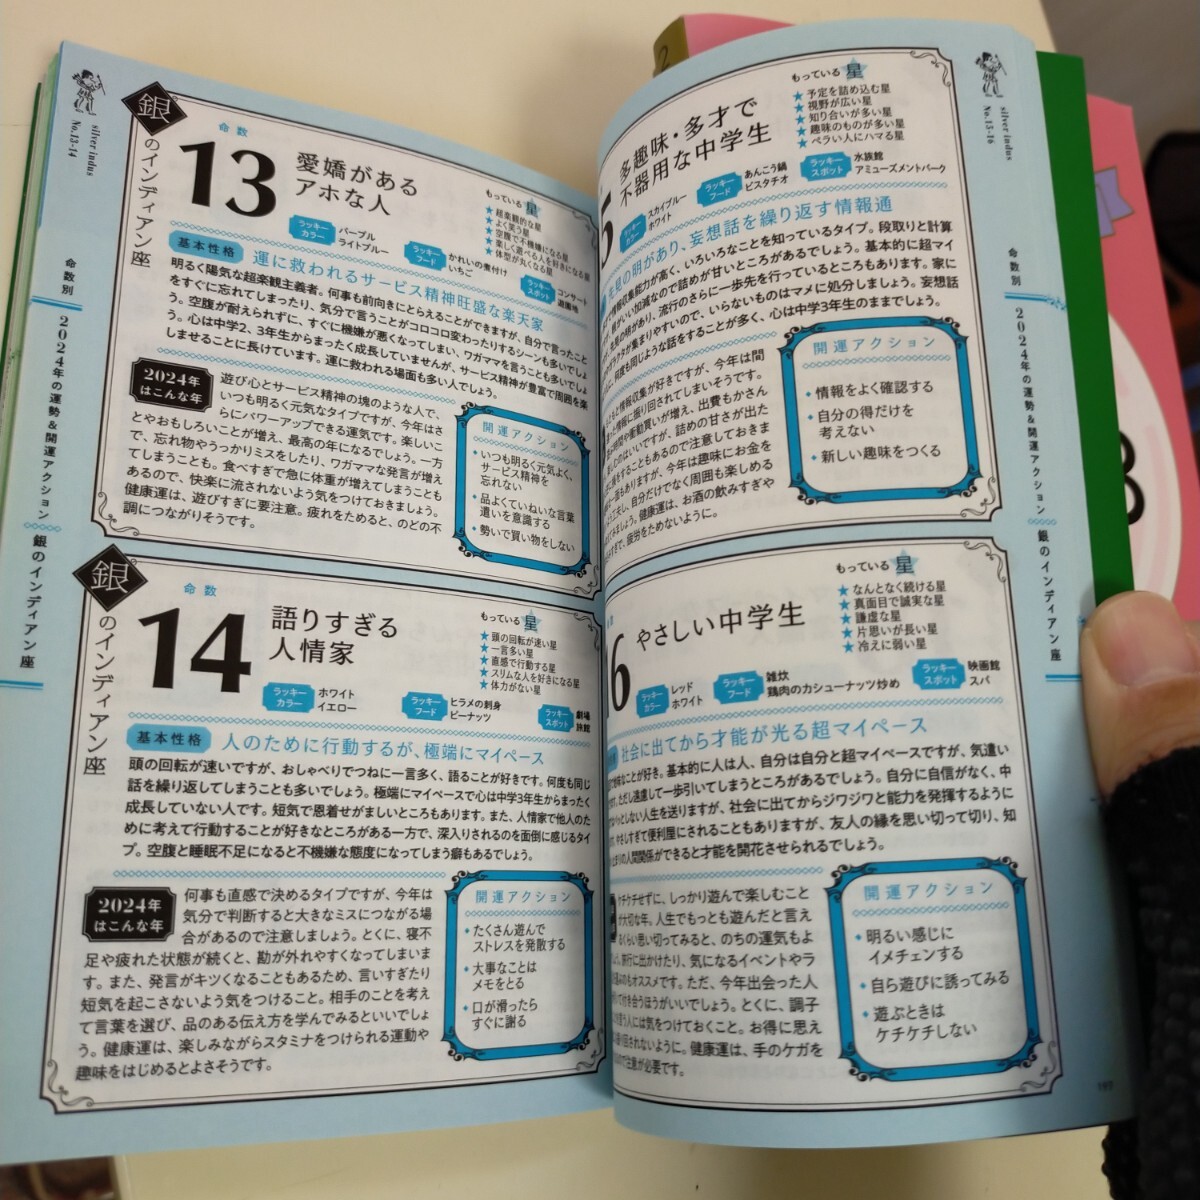 silver indus
No.13-14
命数別
2024年の運勢&開運アクション
銀のインディアン座
銀のインディアン座
命数
13
愛嬌がある
アホな人
もっている星
★超楽観的な星
★よく笑う星
★空腹で不機嫌になる星
★楽しく遊べる人を好きになる星
★体型が丸くなる星
ラッキーカラー
パープル
ライトブルー
ラッキーフード
かれいの煮付け
いちご
ラッキースポット
コンサート
遊園地
基本性格
運に救われるサービス精神旺盛な楽天家
明るく陽気な超楽観主義者。何事も前向きにとらえることができますが、自分で言ったこと
をすぐに忘れてしまったり、気分で言うことがコロコロ変わったりするシーンも多いでしょ
う。空腹が耐えられずに、すぐに機嫌が悪くなってしまい、ワガママを言うことも多いでしょ
う。心は中学2、3年生からまったく成長していませんが、サービス精神が豊富で周囲を楽
しませることに長けています。運に救われる場面も多い人でしょう。
2024年
はこんな年
遊び心とサービス精神の塊のような人で、
いつも明るく元気なタイプですが、今年はさ
らにパワーアップできる運気です。楽しいこ
とやおもしろいことが増え、最高の年になるでしょう。一方
で、忘れ物やうっかりミスをしたり、ワガママな発言が増え
てしまうことも。食べすぎで急に体重が増えてしまうことも
あるので、快楽に流されないよう気をつけておきましょう。
健康運は、遊びすぎに要注意。疲れをためると、のどの不
調につながりそうです。
開運アクション
◆いつも明るく元気よく、
サービス精神を
忘れない
◆品よくていねいな言葉
遣いを意識する
◆勢いで買い物をしない
銀のインディアン座
命数
14
語りすぎる
人情家
もっている星
★頭の回転が速い星
★一言多い星
★直感で行動する星
★スリムな人を好きになる星
★体力がない星
ラッキーカラー
ホワイト
イエロー
ラッキーフード
ヒラメの刺身
ピーナッツ
ラッキースポット
劇場
旅館
基本性格
人のために行動するが、極端にマイペース
頭の回転が速いですが、おしゃべりでつねに一言多く、語ることが好きです。何度も同じ
話を繰り返してしまうことも多いでしょう。極端にマイペースで心は中学3年生からまったく
成長していない人です。短気で恩着せがましいところもあります。また、人情家で他人のた
めに考えて行動することが好きなところがある一方で、深入りされるのを面倒に感じるタイ
プ。空腹と睡眠不足になると不機嫌な態度になってしまう癖もあるでしょう。
2024年
はこんな年
何事も直感で決めるタイプですが、今年は
気分で判断すると大きなミスにつながる場
合があるので注意しましょう。とくに、寝不
足や疲れた状態が続くと、勘が外れやすくなってしまいま
す。また、発言がキツくなることもあるため、言いすぎたり
短気を起こさないよう気をつけること。相手のことを考え
て言葉を選び、品のある伝え方を学んでみるといいでしょ
う。健康運は、楽しみながらスタミナをつけられる運動や
趣味をはじめるとよさそうです。
開運アクション
◆たくさん遊んで
ストレスを発散する
◆大事なことは
メモをとる
◆口が滑ったら
すぐに謝る
5
多趣味・多才で
不器用な中学生
もっている星
★予定を詰め込む星
★視野が広い星
★知り合いが多い星
★趣味のものが多い星
★ペラい人にハマる星
ラッキーカラー
スカイブルー
ホワイト
ラッキーフード
あんこう鍋
ピスタチオ
ラッキースポット
水族館
アミューズメントパーク
先見の明があり、妄想話を繰り返す情報通
情報収集能力が高く、いろいろなことを知っているタイプ。段取りと計算
がいい加減なので詰めが甘いところがあるでしょう。基本的に超マイ
先見の明があり、流行のさらに一歩先を行っているところもあります。家に
ガラクタが集まりやすいので、いらないものはマメに処分しましょう。妄想話
、何度も同じような話をすることが多く、心は中学3年生のままでしょう。
情報収集が好きですが、今年は間
情報に振り回されてしまいそうです。
や衝動買いが増え、出費もかさん
のはいいですが、詰めの甘さが出た
をすることもあるので注意しておきま
もありますが、今年は趣味にお金を
し、自分だけでなく周囲も楽しめる
ましょう。健康運は、お酒の飲みすぎや
、疲労をためないように。
開運アクション
◆情報をよく確認する
◆自分の得だけを
考えない
◆新しい趣味をつくる
6
やさしい中学生
もっている星
★なんとなく続ける星
★真面目で誠実な星
★謙虚な星
★片思いが長い星
★冷えに弱い星
ラッキーカラー
レッド
ホワイト
ラッキーフード
雑炊
鶏肉のカシューナッツ炒め
ラッキースポット
映画館
スパ
社会に出てから才能が光る超マイペース
なことが好き。基本的に人は人、自分は自分と超マイペースですが、気遣い
ただし遠慮して一歩引いてしまうところがあるでしょう。自分に自信がなく、中
っとしない人生を送りますが、社会に出てからジワジワと能力を発揮するように
やさしすぎて便利屋にされることもありますが、友人の縁を思い切って切り、知
まりの人間関係ができると才能を開花させられるでしょう。
ケチケチせずに、しっかり遊んで楽しむこと
が大切な年。人生でもっとも遊んだと言え
るくらい思い切ってみると、のちの運気もよ
旅行に出かけたり、気になるイベントやラ
のもオススメです。ただ、今年出会った人
付き合うほうがいいでしょう。とくに、調子
人には気をつけておくこと。お得に思え
回されないように。健康運は、手のケガを
注意が必要です。
開運アクション
◆明るい感じに
イメチェンする
◆自ら遊びに誘ってみる
◆遊ぶときは
ケチケチしない
silver indus
No.15-16
命数別
2024年の運勢&開運アクション
銀のインディアン座